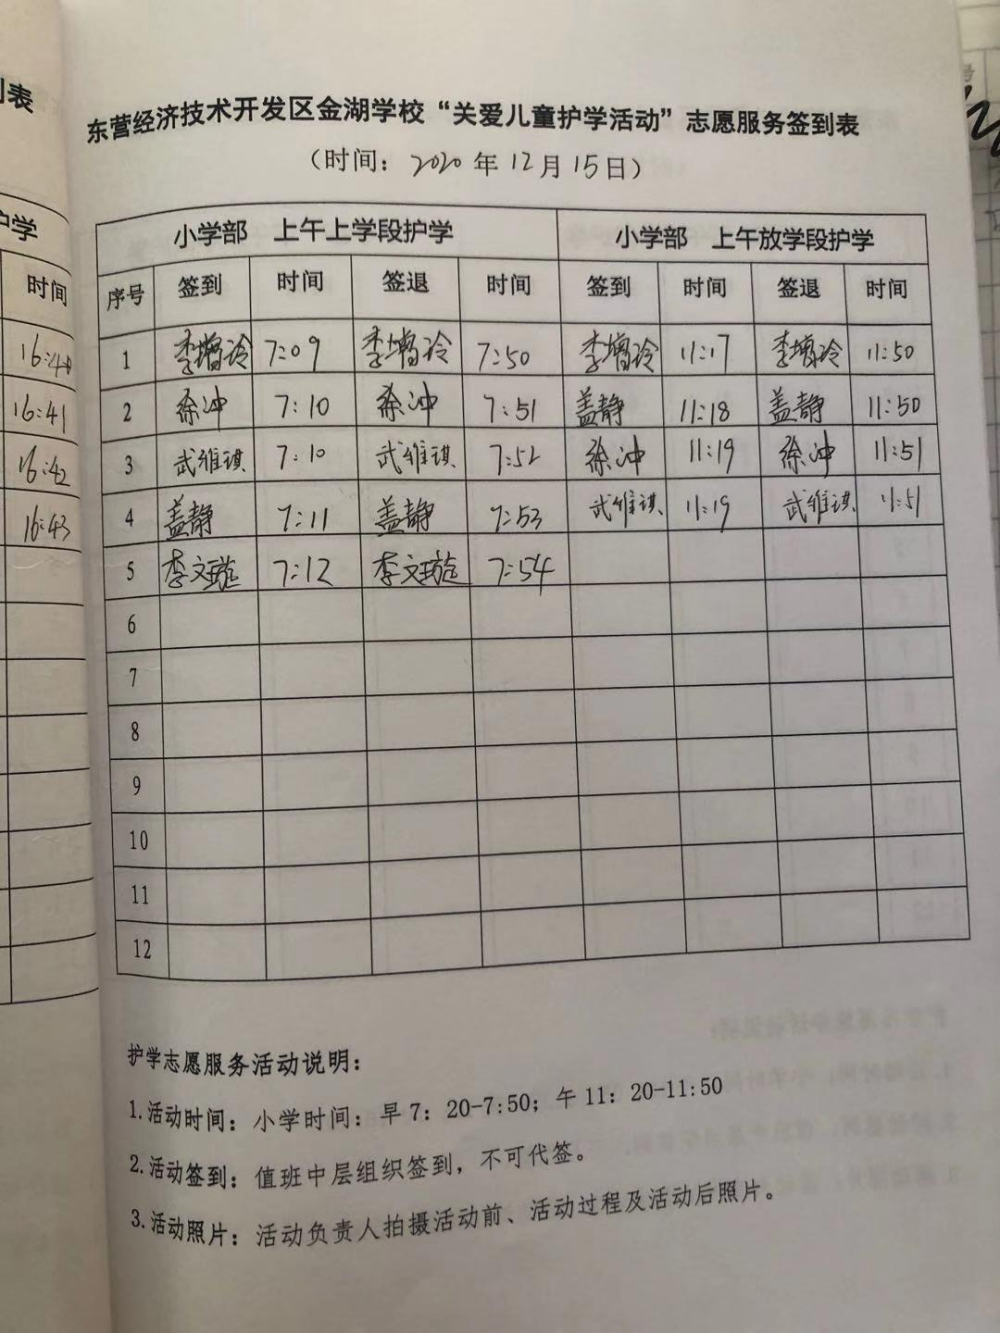 东营经济技术开发区金湖学校“关爱儿童护学活动”志愿服务签到表
（时间：2020年12月15日）
小学部 上午上学段护学 小学部 上午放学段护学
序号 签到 时间 签退 时间 签到 时间 签退 时间
1 李增玲 7:09 李增玲 7:50 李增玲 11:17 李增玲 11:50
2 徐冲 7:10 徐冲 7:51 盖静 11:18 盖静 11:50
3 武维琪 7:10 武维琪 7:52 徐冲 11:19 徐冲 11:51
4 盖静 7:11 盖静 7:53 武维琪 11:19 武维琪 11:51
5 李文璇 7:12 李文璇 7:54
6
7
8
9
10
11
12
护学志愿服务活动说明：
1.活动时间：小学时间：早7：20-7:50；午11：20-11:50
2.活动签到：值班中层组织签到，不可代签。
3.活动照片：活动负责人拍摄活动前、活动过程及活动后照片。
表
护学
时间
16:40
16:41
16:42
16:43